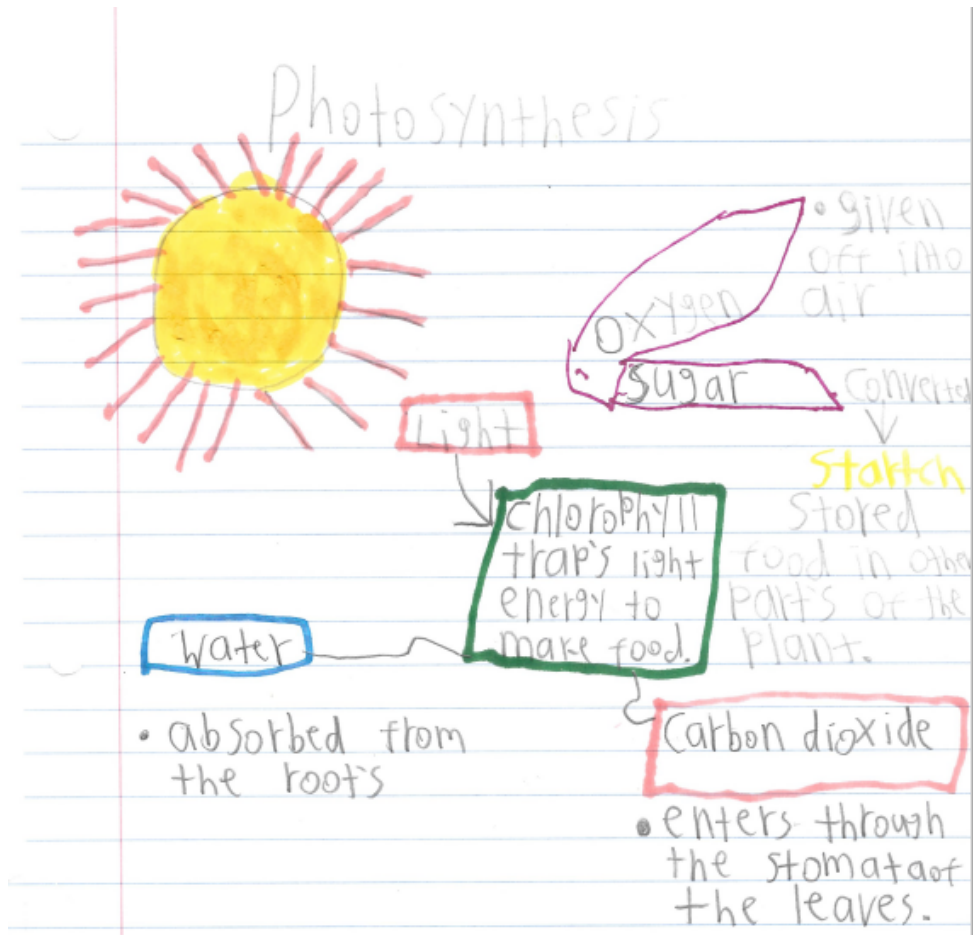 Photosynthesis
• given
off into
air
Oxygen
Sugar
Converted
Startch
Stored
food in other
part's of the
plant.
Light
Chlorophyll
trap's light
energy to
make food.
Water
• absorbed from
the root's
Carbon dioxide
• enters through
the stomata of
the leaves.